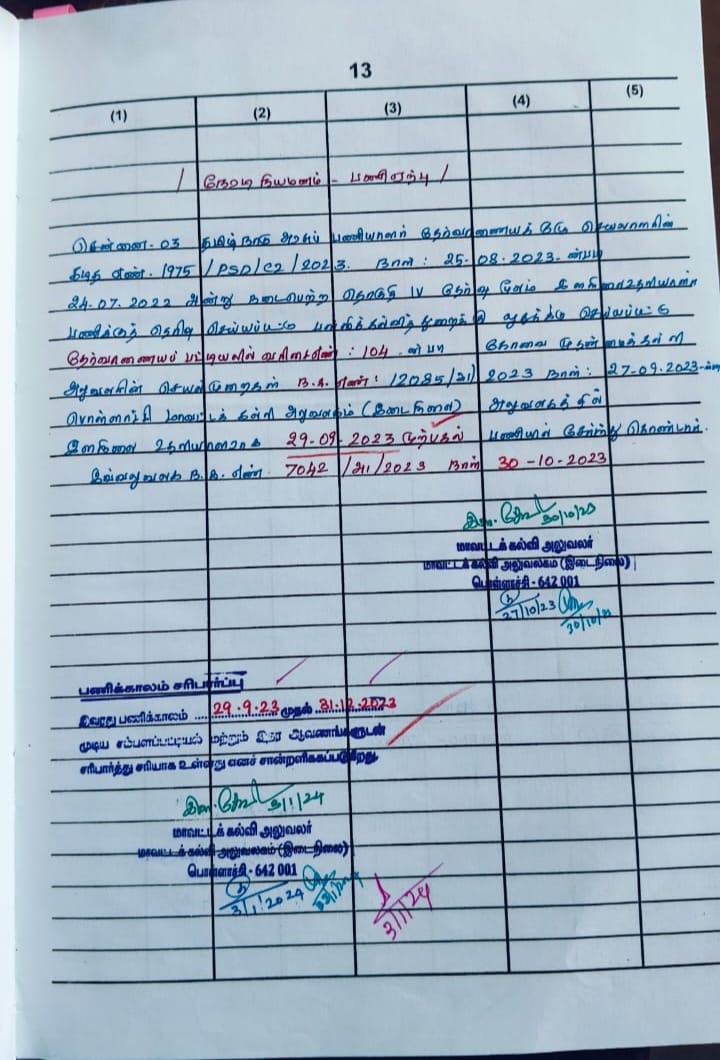 13
(1) (2) (3) (4) (5)
/ நேரடி நியமனம் - பணியேற்பு /
சென்னை-03 தமிழ்நாடு அரசுப் பணியாளர் தேர்வாணையத் துறை செயலாளரின்
கடித எண். 1975 /PSD/C2/2023. நாள் : 25-08-2023-ன்படி
24.07.2022 அன்று நடைபெற்ற தொகுதி IV தேர்வு மூலம் இளநிலை உதவியாளர்
பணிக்குத் தெரிவு செய்யப்பட்டு பள்ளிக்கல்வித் துறைக்கு ஒதுக்கீடு செய்யப்பட்டு
தேர்வாணையப் பட்டியலின் வரிசைஎண் : 104 -ன் படி கோவை முதன்மைக்கல்வி
அலுவலரின் செயல்முறைகள் ந.க.எண்: 12085/அ1/2023 நாள்: 27-09-2023-ன்படி
பொள்ளாச்சி மாவட்டக் கல்வி அலுவலகம் (இடைநிலை) அலுவலகத்தில்
இளநிலை உதவியாளராக 29-09-2023 முற்பகல் பணியில் சேர்ந்து கொண்டார்.
இவ்வலுவலக ந.க.எண். 7042 /அ1/2023 நாள் 30-10-2023
30/10/23
மாவட்டக் கல்வி அலுவலர்
மாவட்டக் கல்வி அலுவலகம் (இடைநிலை)
பொள்ளாச்சி - 642 001
27/10/23 30/10/23
பணிக்காலம் சரிபார்ப்பு
இவரது பணிக்காலம் .... 29.9.23 முதல் 31.12.2023
முடிய சம்பளப்பட்டியல் மற்றும் இதர ஆவணங்களுடன்
சரிபார்த்து சரியாக உள்ளது எனச் சான்றளிக்கப்படுகிறது
3/1/24
மாவட்டக் கல்வி அலுவலர்
மாவட்டக் கல்வி அலுவலகம் (இடைநிலை)
பொள்ளாச்சி - 642 001
3/1/2024
3/1/24